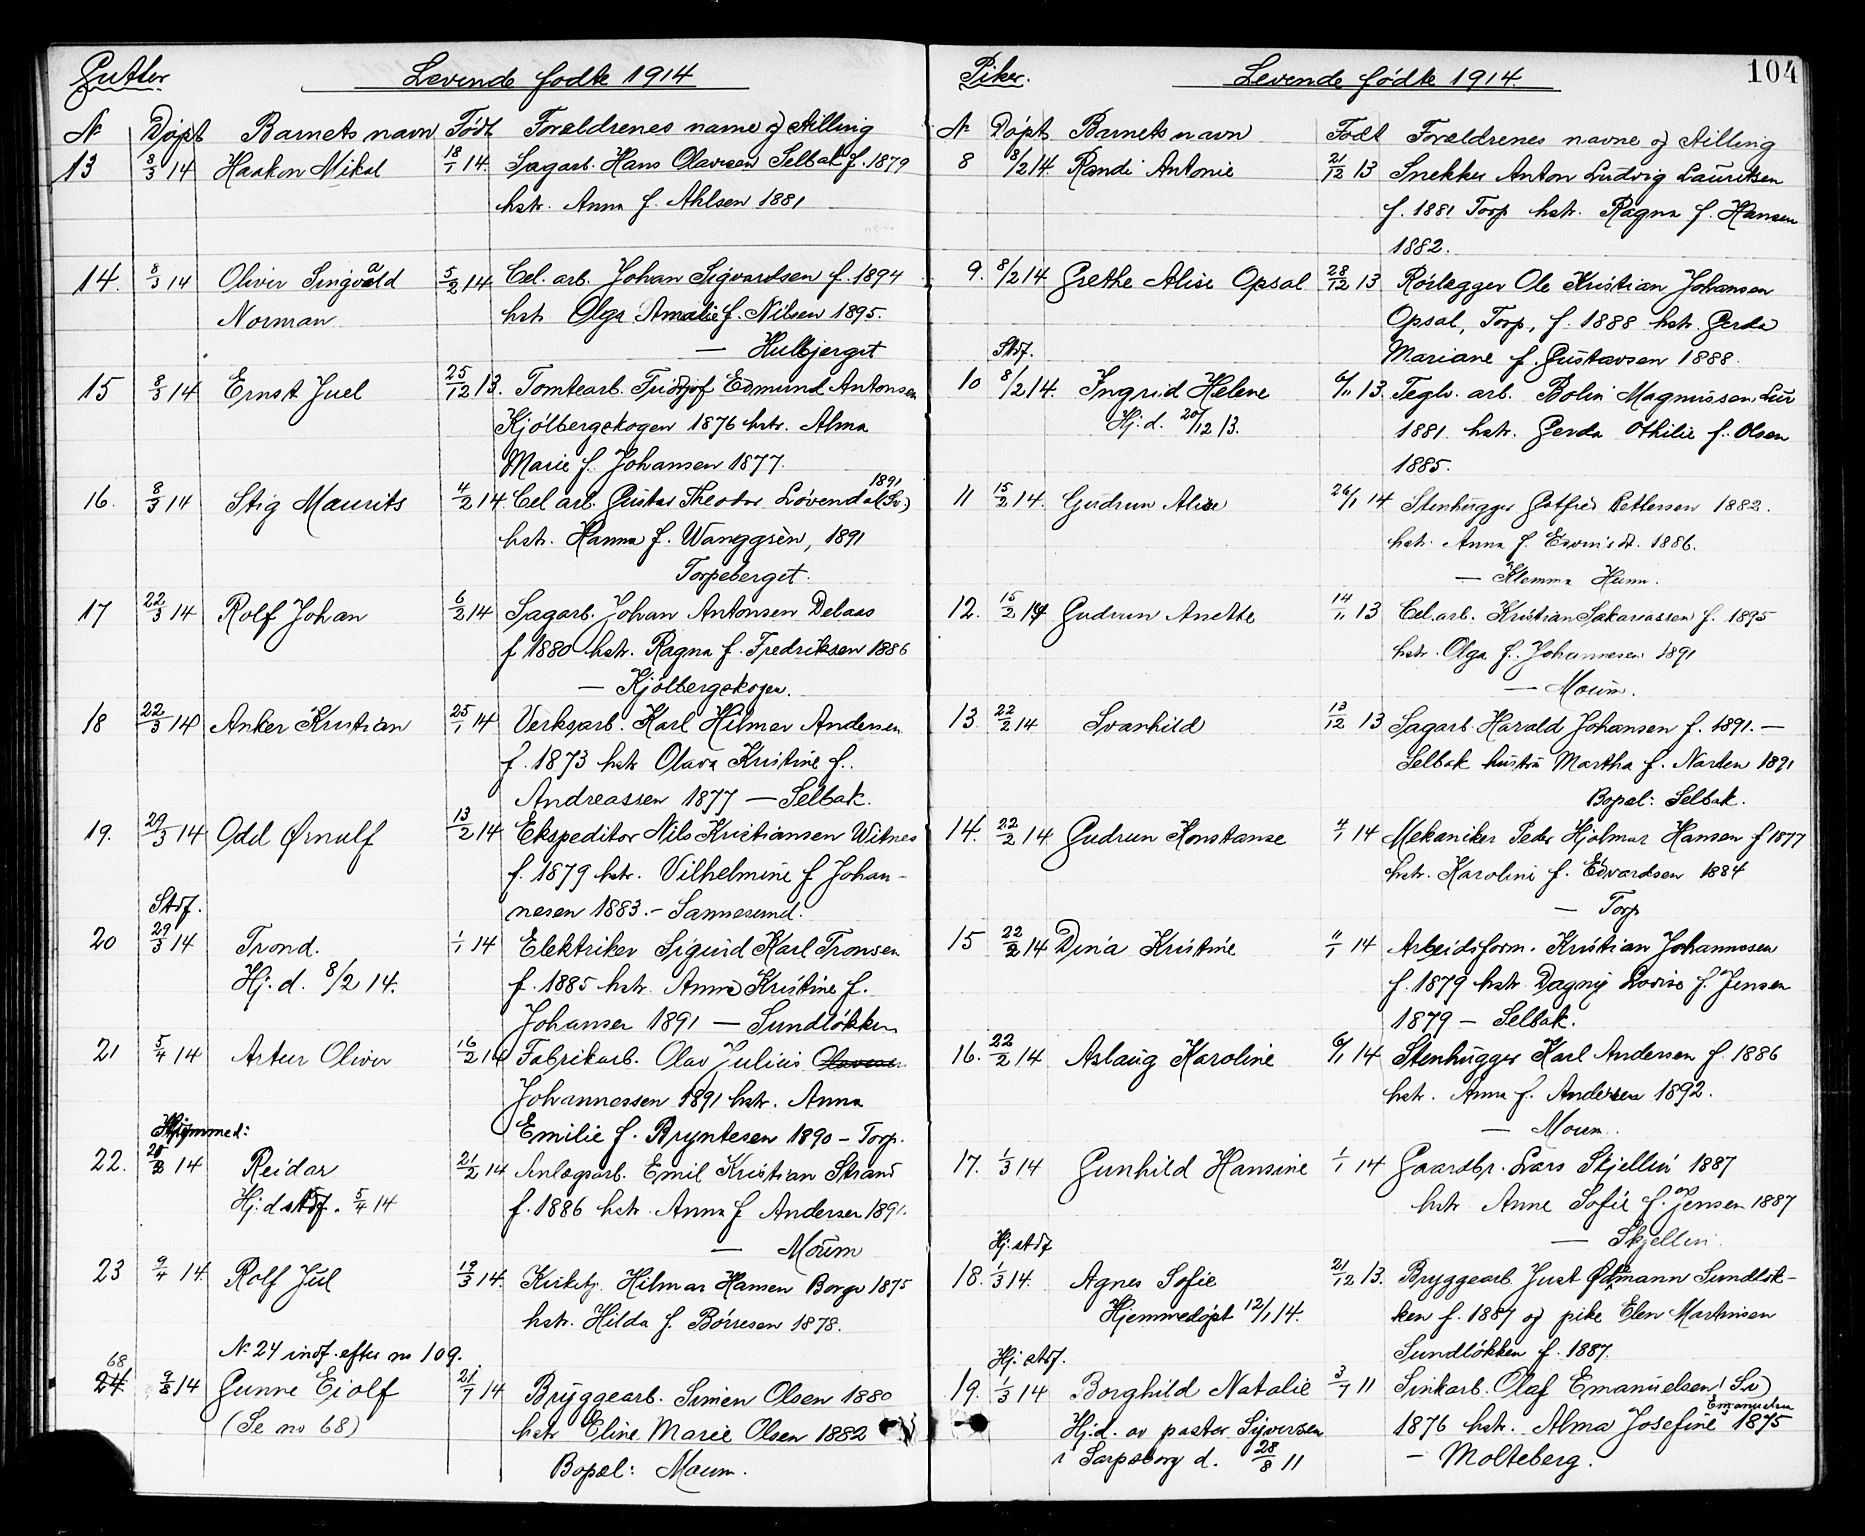 Gutter
Levende fødte 1914
Nr Døpt Barnets navn Født Forældrenes navne og stilling
13 8/3 14 Haakon Mikal 18/1 14. Sagarb. Hans Olavesen Selbak f. 1879
hstr. Anna f. Ahlsen 1881
14. 8/3 14 Oliver Singvald 5/2 14 Cel. arb. Johan Sigvardsen f. 1894
Norman hstr. Olga Amalie f. Nilsen 1895.
— Hulbjerget
15 8/3 14 Ernst Juel 25/12 13. Tomtearb. Fridtjof Edmund Antonsen
Kjölbergskogen 1876 hstr. Alma
Marie f. Johansen 1877.
1891
16. 8/3 14 Stig Maurits 4/2 14 Cel arb. Gustav Theodor Lövendal (Sv.)
hstr. Hanna f. Wanggsèn, 1891
Torpeberget.
17 22/3 14 Rolf Johan 6/2 14 Sagarb. Johan Antonsen Delaas
f 1880 hstr. Ragna f. Fredriksen 1886
— Kjölbergskogen.
18 22/3 14 Anker Kristian 25/1 14 Verksarb. Karl Hilmar Andersen
f. 1873 hstr Olava Kristine f.
Andreassen 1877 — Selbak.
19. 29/3 14 Odd Ørnulf 13/2 14 Ekspeditor Nils Kristiansen Witnes
f. 1879 hstr. Vilhelmine f Johan-
nesen 1883. - Sannesund.
Stdf.
20 29/3 14 Trond. 1/1 14 Elektriker Sigurd Karl Tronsen
Hj. d. 8/2 14. f. 1885 hstr. Anna Kristine f.
Johansen 1891 — Sundlökken
21 5/4 14 Artur Oliver 16/2 14 Fabrikarb. Olav Julius
Johannessen 1891 hstr. Anna
Emilie f. Bryntesen 1890 - Torp.
Hjemmed:
22. 14 Reidar 21/2 14 Anlægsarb. Emil Kristian Strand
Hj. d stdf. 5/4 14 f. 1886 hstr. Anna f Andersen 1891.
— Moum
23 9/4 14. Rolf Jul 19/3 14. Kirketj. Hilmar Hansen Borge 1875
hstr. Hilda f. Børresen 1878.
Nr 24 indf. efter no 109.
68
24 9/8 14 Gunne Eiolf 21/7 14 Bryggearb. Simen Olsen 1880
(Se no 68) hstr Eline Marie Olsen 1882
Bopæl: Moum.
Piker.
Levende fødte 1914.
104
Nr Döpt Barnets navn Født Forældrenes navne og stilling
8 8/2 14. Randi Antonie 21/12 13 Snekker Anton Ludvig Lauritsen
f. 1881 Torp hstr. Ragna f. Hansen
1882.
9. 8/2 14 Grethe Alise Opsal 28/12 13 Rörlegger Ole Kristian Johansen
Opsal, Torp, f. 1888 hstr. Gerda
Mariane f. Gustavsen 1888.
Stdf.
10 8/2 14. Ingrid Helene 6/11 13. Teglv. arb. Bolin Magnussen Lur
Hj. d. 20/12 13. 1881 hstr. Gerda Othilie f. Olsen
1885.
11 15/2 14. Gudrun Alise 26/1 14 Stenhugger Gotfred Pettersen 1882.
hstr. Anna f. 1886.
— Klemma Hunn.
12. 15/2 14 Gudrun Anette 14/11 13 Cel. arb. Kristian Sakariassen f. 1895
hstr. Olga f. Johannesen 1891
— Moum.
13. 22/2 14 Svanhild 13/12 13 Sagarb. Harald Johansen f. 1891. —
Selbak hustru Martha f. Narten 1891
Bopæl: Selbak.
14. 22/2 14 Gudrun Konstanse 4/1 14 Mekaniker Peder Hjalmar Hansen f 1877
hstr. Karoline f. Edvardsen 1884
— Torp
15 22/2 14 Dina Kristine 11/1 14 Arbeidsform. Kristian Johannesen
f. 1879 hstr Dagny Lovise f. Jensen
1879 - Selbak.
16. 22/2 14 Aslaug Karoline 6/1 14 Stenhugger Karl Andersen f. 1886
hstr. Anna f. Andersen 1892.
— Moum.
17. 1/3 14 Gunhild Hansine 1/1 14 Gaardbr. Lars Skjellin 1887
hstr Anne Sofie f. Jensen 1887
— Skjellin.
Hj. stdf
18. 1/3 14. Agnes Sofie 21/12 13. Bryggearb. Just Ødmann Sundløk-
Hjemmedöpt 12/1 14. ken f. 1887 og pike Elen Martinsen
Sundlökken f. 1887.
Hj. stdf.
19. 1/3 14 Borghild Natalie 3/7 11 Sinkarb. Olaf Emanuelsen (Sv)
Emanuelsen
Hj. d. av pastor Syversen 1876 hstr. Alma Josefine 1875
i Sarpsborg d. 28/8 11 - Molteberg.